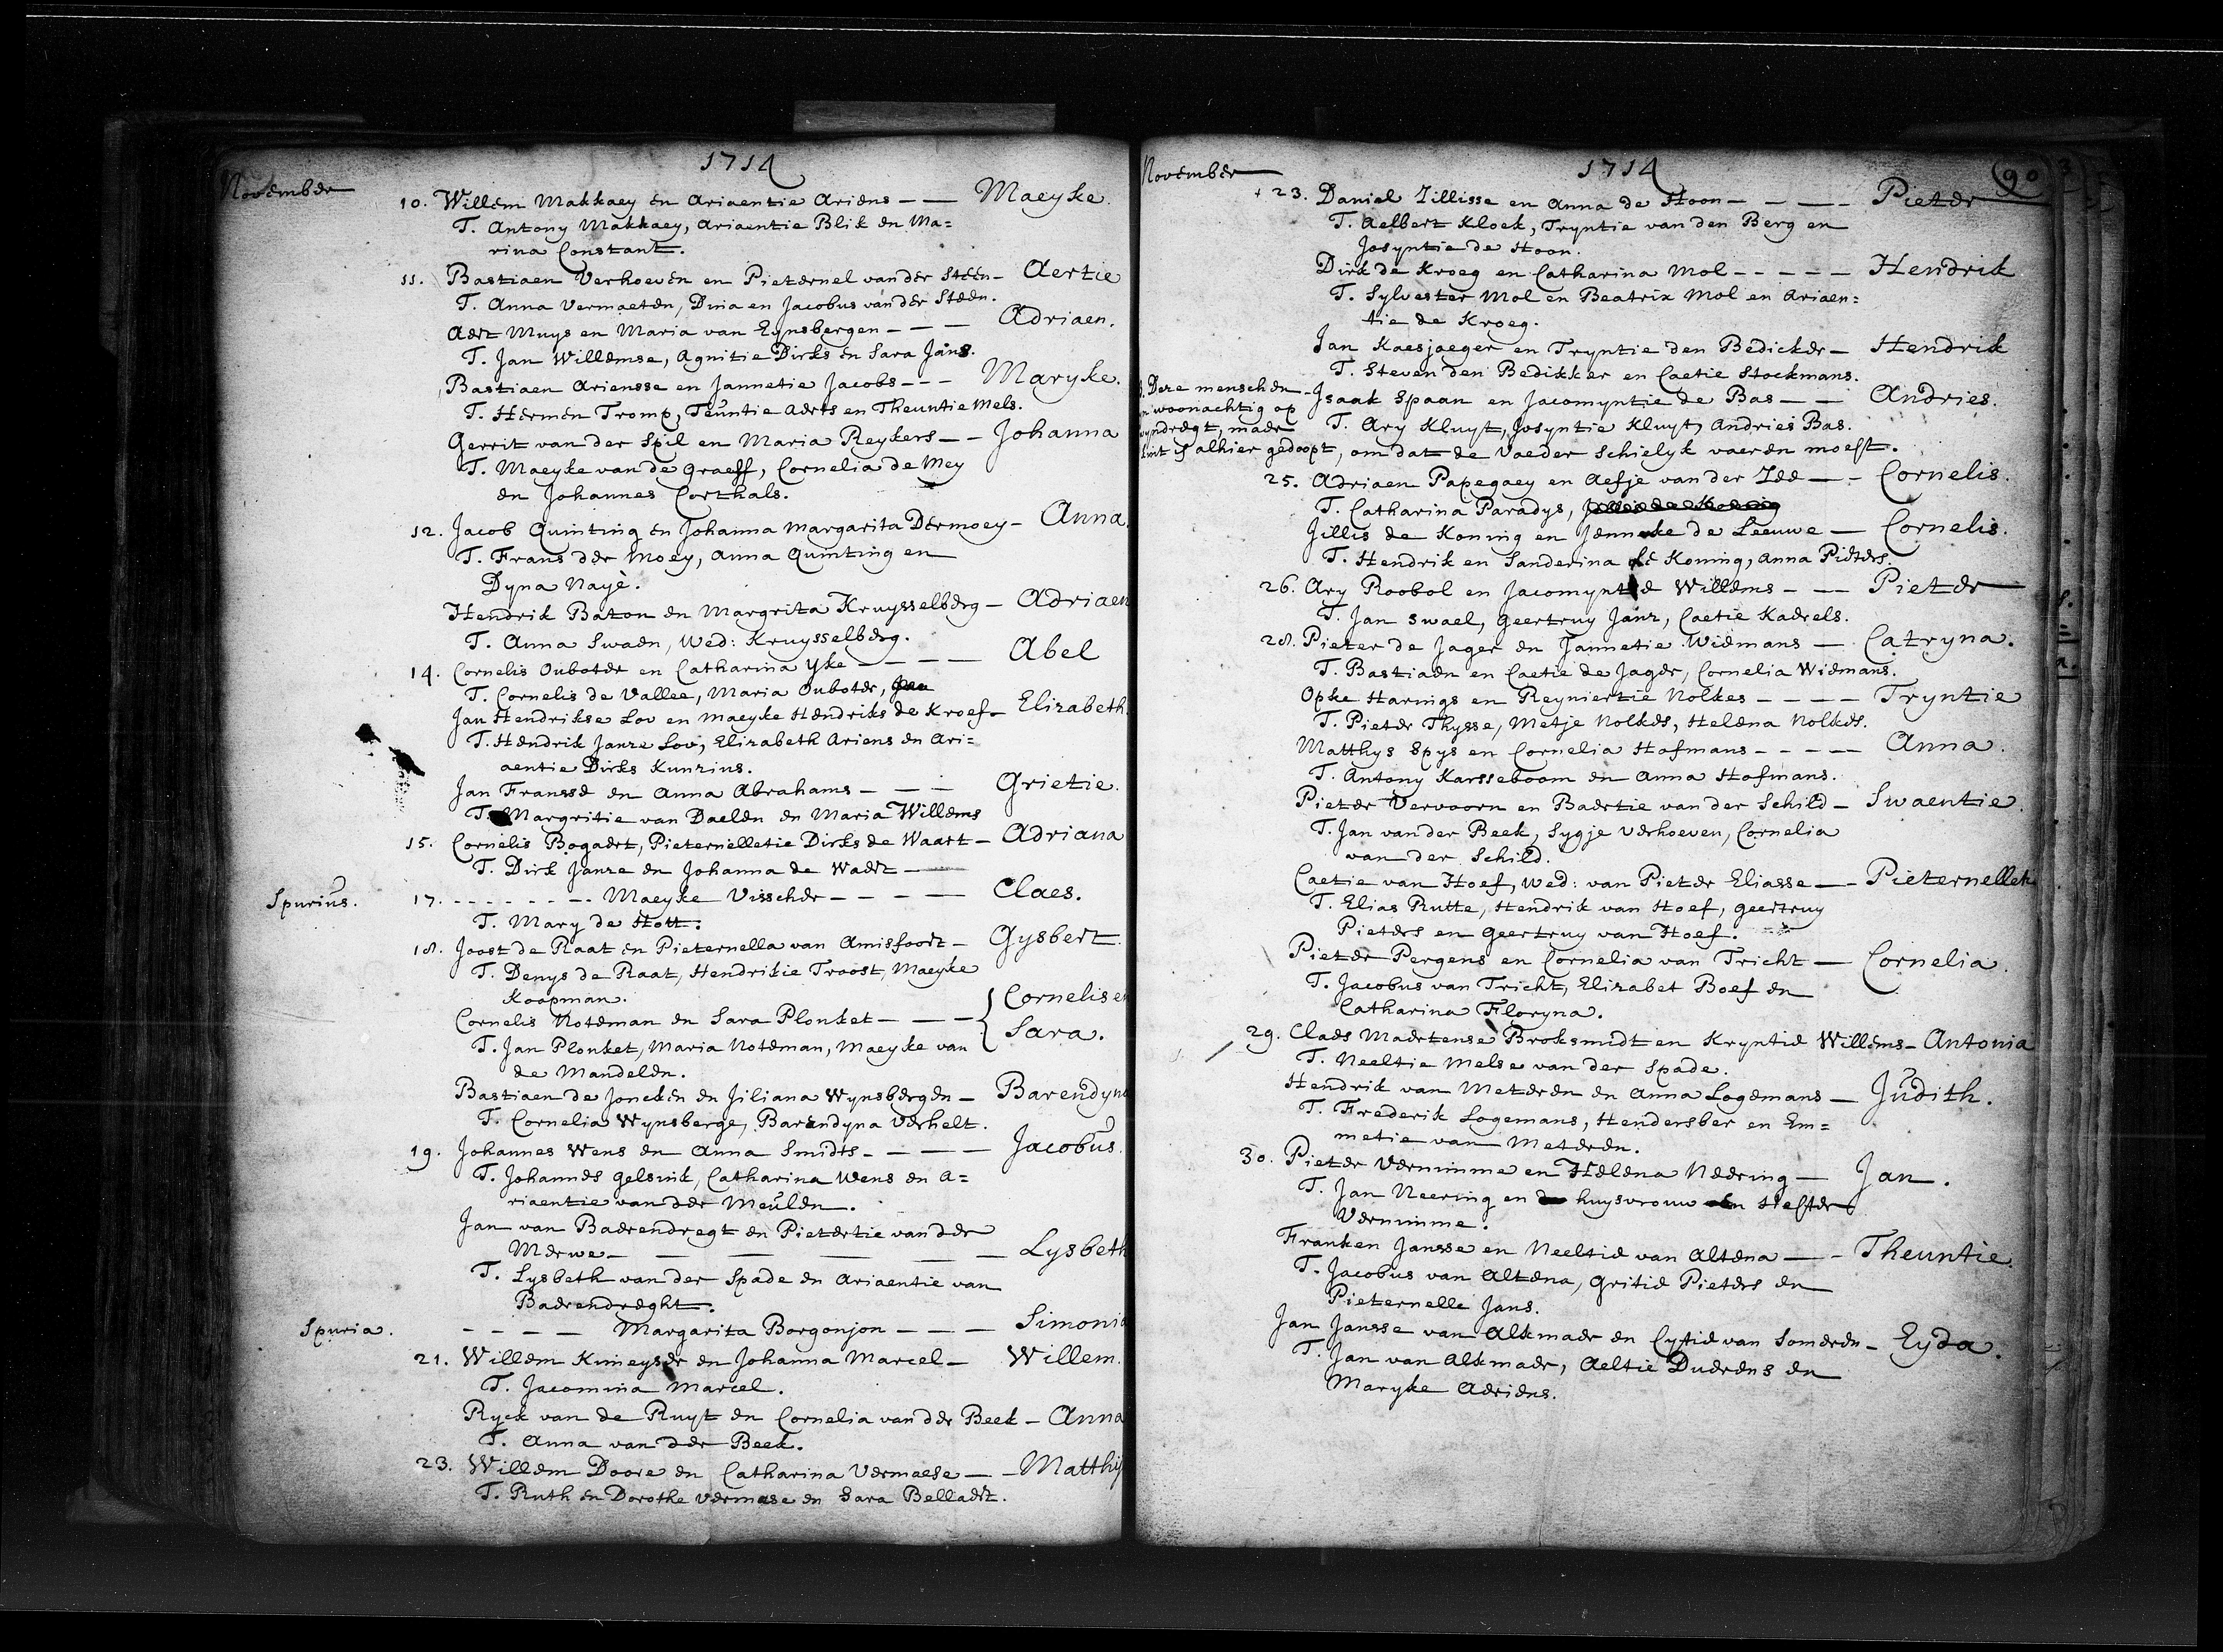 1714
November
10. Willem Makkaey en Ariaentie Ariens - - Maeyke.
T. Antony Makkaey, Ariaentie Blik en Ma=
rina Constant.
11. Bastiaen Verhoeven en Pieternel vander Steen - Aertie
T. Anna Vermaeten, Dina en Jacobus vander Steen.
Aert Muys en Maria van Eynsbergen - - - Adriaen.
T. Jan Willemse, Agnitie Dirks en Sara Jans.
Bastiaen Ariensse en Jannetie Jacobs - - - Maryke.
T. Hermen Tromp, Teuntie Aerts en Theuntie Mels.
Gerrit van der Spil en Maria Reykers - - Johanna
T. Maeyke van de Graeff, Cornelia de Mey
en Johannes Corthals.
12. Jacob Quinting en Johanna Margarita Dermoey - Anna.
T. Frans der Moey, Anna Quinting en
Dyna Nayè.
Hendrik Baton en Margrita Kruysselberg - Adriaen
T. Anna Swaen, Wed: Kruysselberg.
14. Cornelis Ouboter en Catharina Yke - - - - Abel
T. Cornelis de Vallee, Maria Ouboter, Jan
Jan Hendrikse Lov en Maeyke Hendriks de Kroef - Elizabeth.
T. Hendrik Janze Lov, Elizabeth Ariens en Ari=
aentie Dirks Kunzius.
Jan Fransse en Anna Abrahams - - - Grietie.
T. Margritie van Daelen en Maria Willems
15. Cornelis Bogaert, Pieternelletie Dirks de Waart - Adriana
T. Dirk Janze en Johanna de Waert -
Spurius. 17. - - - - - - - Maeyke Visscher - - - - Claes.
T. Mary de Hott.
18. Joost de Raat en Pieternella van Amisfoort - Gysbert.
T. Denys de Raat, Hendrikie Troost, Maeyke
Koopman.
Cornelis Noteman en Sara Plonket - - - { Cornelis en
Sara.
T. Jan Plonket, Maria Noteman, Maeyke van
de Mandelen.
Bastiaen de Joncken en Jiliana Wynsbergen - Barendyna
T. Cornelia Wynsberge, Barendyna Verhelt.
19. Johannes Wens en Anna Smidts - - - - Jacobus.
T. Johannes Gelsink, Catharina Wens en A=
riaentie van der Meulen.
Jan van Baerendregt en Pietertie vander
Merwe - - - - - Lysbeth
T. Lysbeth van der Spade en Ariaentie van
Baerendreght.
Spuria. - - - - Margarita Borgonjon - - - Simonia
21. Willem Kimeyser en Johanna Marcel - Willem.
T. Jacomina Marcel.
Ryck van de Ruyt en Cornelia vander Beek - Anna
T. Anna vander Beek.
23. Willem Doore en Catharina Vermaese - - Matthijs
T. Ruth en Dorothe Vermase en Sara Bellaert.
1714
90
3
November
23. Daniel Zillisse en Anna de Hoon - - - - Pieter
T. Aelbert Kloek, Tryntie van den Berg en
Josyntie de Hoon.
Dirk de Kroeg en Catharina Mol - - - - - Hendrik
T. Sylvester Mol en Beatrix Mol en Ariaen=
tie de Kroeg.
Jan Kaesjaeger en Tryntie den Bedicker - Hendrik
T. Steven den Bedikker en Caetie Stockmans.
Deze menschen - Isaak Spaan en Jacomyntie de Bas - - Andries.
woonachtig op
T. Ary Kluyt, Josyntie Kluyt, Andries Bas.
maer
is alhier gedoopt, om dat de Vaeder schielyk vaeren moest.
25. Adriaen Papegaey en Aefje van der Zee - - Cornelis.
T. Catharina Paradys, Jillis de Koning
Jillis de Koning en Jenneke de Leeuwe - Cornelis.
T. Hendrik en Sanderina de Koning, Anna Pieters.
26. Ary Roobol en Jacomyntie Willems - - - Pieter
T. Jan Swael, Geertruy Janz, Caetie Kaerels.
28. Pieter de Jager en Jannetie Wiemans - Catryna.
T. Bastiaen en Caetie de Jager, Cornelia Wiemans.
Opke Harings en Reyniertie Nolkes - - - - Tryntie
T. Pieter Thysse, Metje Nolkes, Helena Nolkes.
Matthys Spys en Cornelia Hofmans - - - - Anna.
T. Antony Karsseboom en Anna Hofmans.
Pieter Vervoorn en Baertie van der Schild - Swaentie.
T. Jan van der Beek, Sygje Verhoeven, Cornelia
van der Schild.
Caetie van Hoef, Wed: van Pieter Eliasse - - Pieternelletie
T. Elias Rutte, Hendrik van Hoef, Geertruy
Pieters en Geertruy van Hoef.
Pieter Pergens en Cornelia van Tricht - Cornelia.
T. Jacobus van Tricht, Elizabet Boef en
Catharina Floryna.
29. Claes Maertense Broksmidt en Kryntie Willems - Antonia
T. Neeltie Melse van der Spade.
Hendrik van Meteren en Anna Logemans - Judith.
T. Frederik Logemans, Hendersber en Em=
metie van Meteren.
30. Pieter Vernimme en Helena Neering - Jan.
T. Jan Neering en huysvrouw en Hester
Vernimme.
Franken Jansse en Neeltie van Altena - - Theuntie.
T. Jacobus van Altena, Gritie Pieters en
Pieternelle Jans.
Jan Jansse van Alkmaer en Cystie van Someren - Eyda.
T. Jan van Alkmaer, Aeltie Duerens en
Maryke Aeriens.